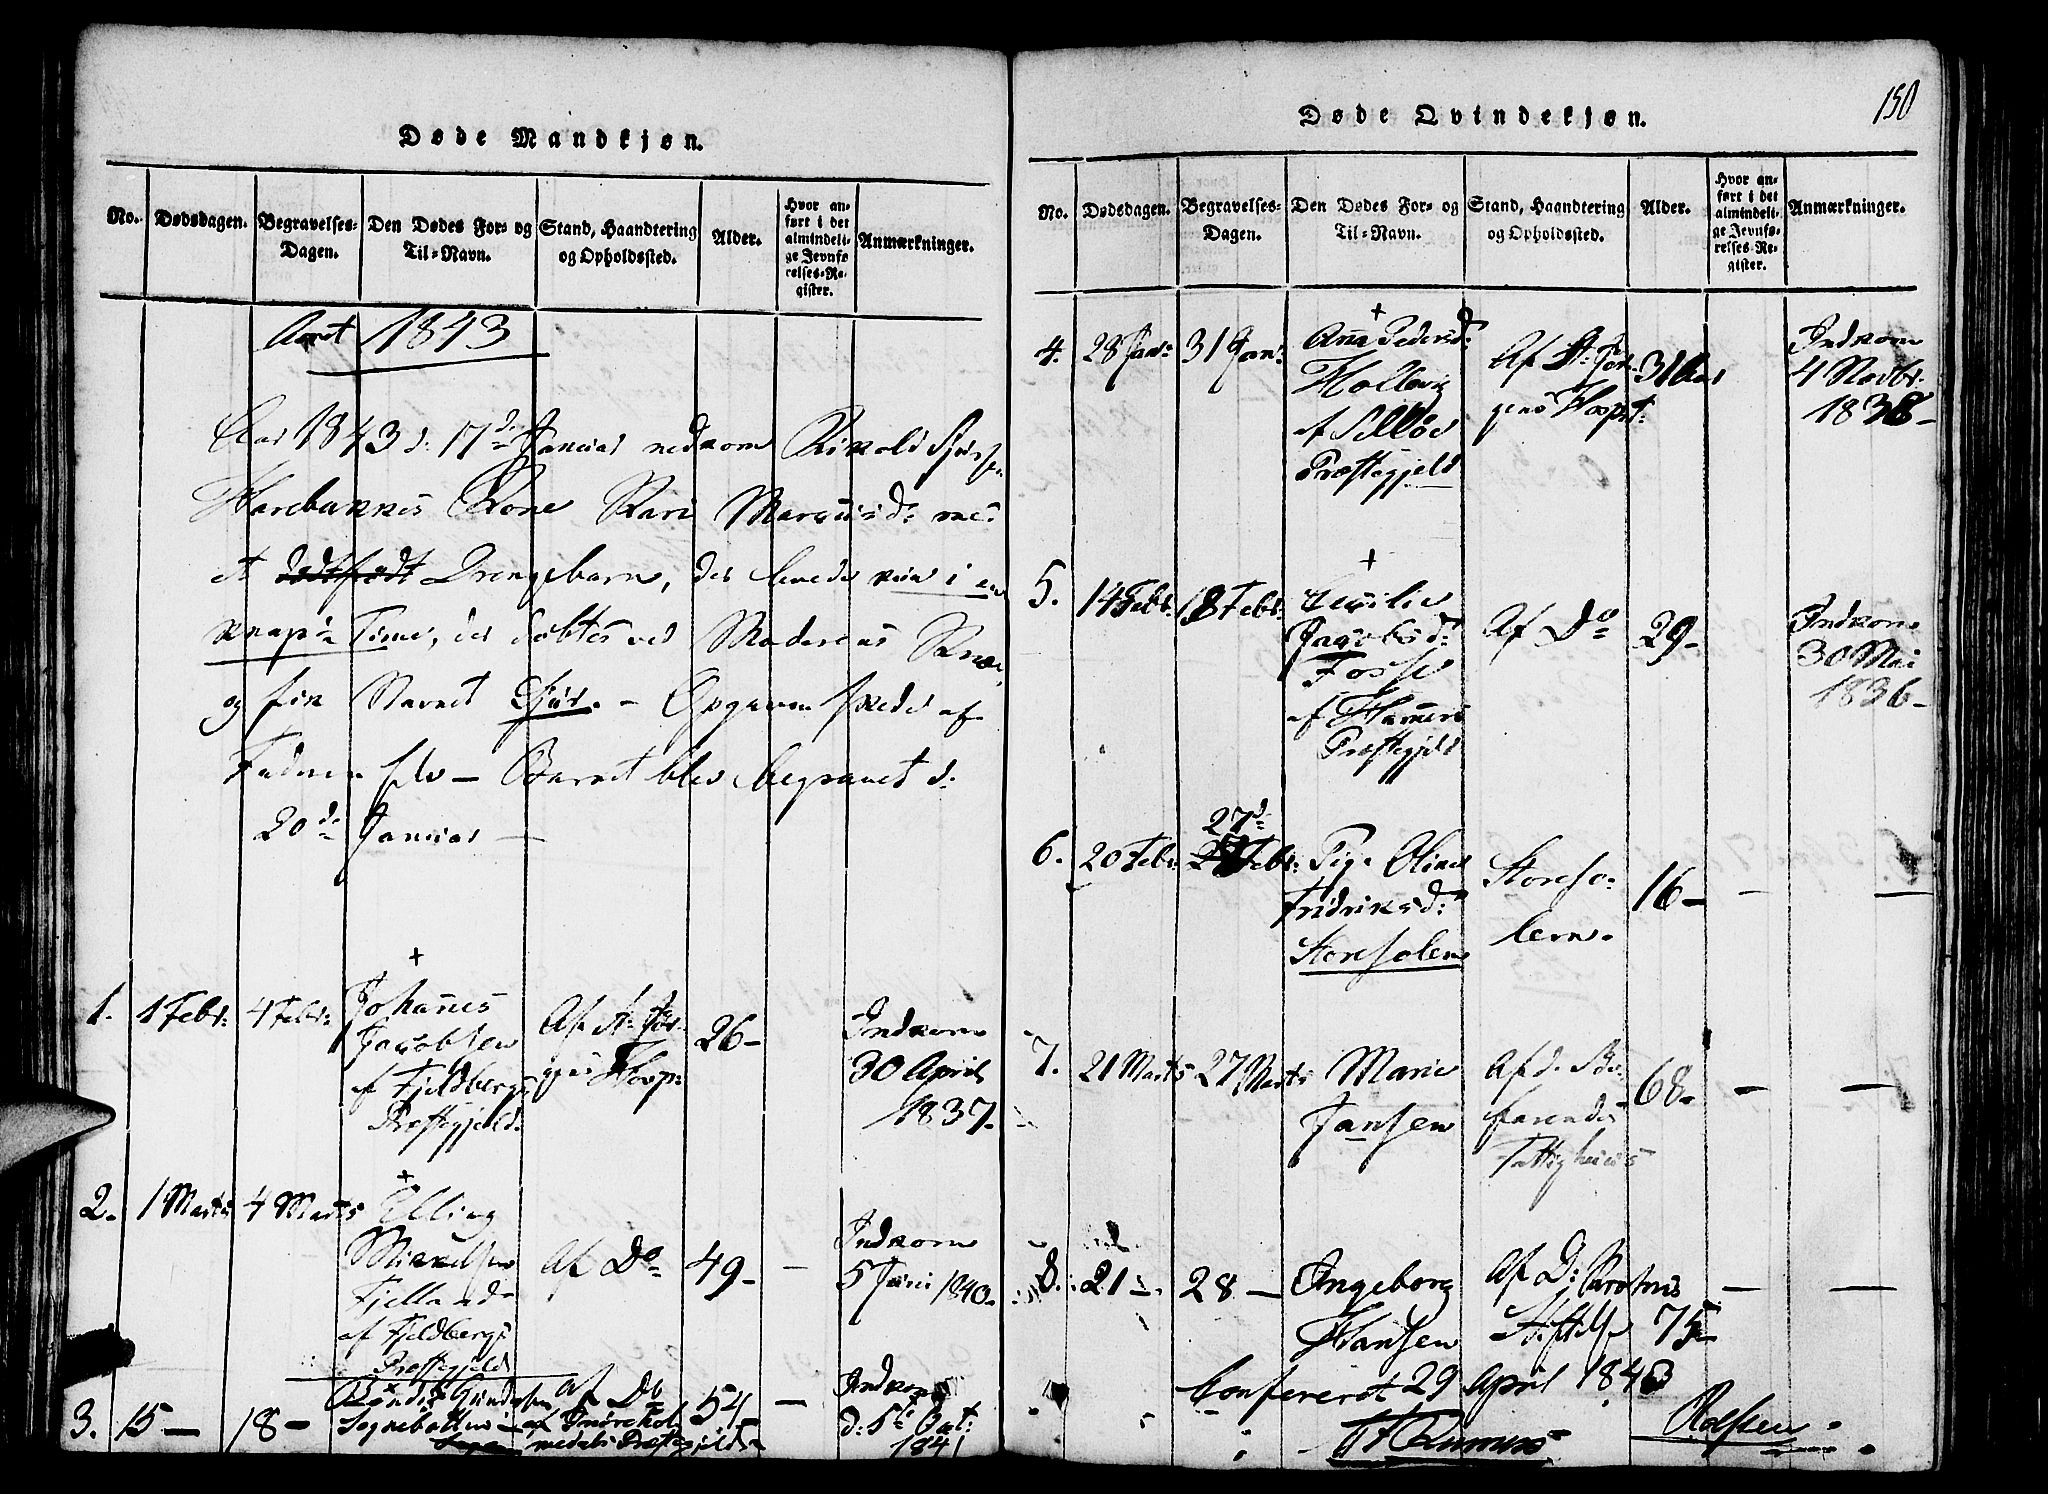 Døde Mandkjøn.
No.
Dødsdagen.
Begravelses-
Dagen.
Den Dødes For- og
Til-Navn.
Stand, Haandtering
og Opholdssted.
Alder.
Hvor an-
ført i det
almindeli-
ge Jevnfø-
relses-Re-
gister.
Anmærkninger.
Aaret 1843
Aar 1843 d: 17de Januar nedkom Rikold Sjurs
Kone Kari d:
et dødtfødt Drengebarn, der levede kun i en
knap Time, der døbtes ved Moderens Knæ,
og fik Navnet Sjur. - Opgaven skede af
Faderen selv - Barnet blev begravet d:
20de Januar -
+
1. 1 Febr: 4 Febr: Johannes
Jacobsen
af Fjeldbergs
Præstegjeld.
Af St: Jør-
gens Hosp:
26-
Indkom
30 April
1837-
+
2. 1 Marts 4 Marts Elling
Mikkelsen
Fjelland
af Fjeldbergs
Præstegjeld
Af Do
49- -
Indkom
5 Juni 1840-
3. 15 - 18 -
Gundersen
af Do
54 -
Sognebotten
Præstegjeld
Indkom
d: 5te Oct:
1841
150
Døde Qvindekjøn.
No.
Dødsdagen.
Begravelses-
Dagen.
Den Dødes For- og
Til-Navn.
Stand, Haandtering
og Opholdssted.
Alder.
Hvor an-
ført i det
almindeli-
ge Jevnfø-
relses-Re-
gister.
Anmærkninger.
+
4. 28 Jan: 31 Jan: Anna Pedersd:
af Selløe
Præstegjeld
Af St: Jør-
gens Hospt:
31 Aar
Indkom
4 Novbr:
1838-
+
5. 14 Febr: 18 Febr: Cecilie
Jacobsd:
Fosse
af Hammers
Præstegjeld
Af Do
29-
Indkom
30 Mai
1836-
27d
6. 20 Febr: Febr: Pige Oline
Fridriksd:
Storesolen
Storeso-
leen.
16- - -
7. 21 Marts 27 Marts Marie
Jansen
Af d.
farendes
Fattighuus
68- - -
8. 21 - 28 - Ingeborg
Hansen
Af D:
Stiftelse 75 - -
Confereret 29 April 1843